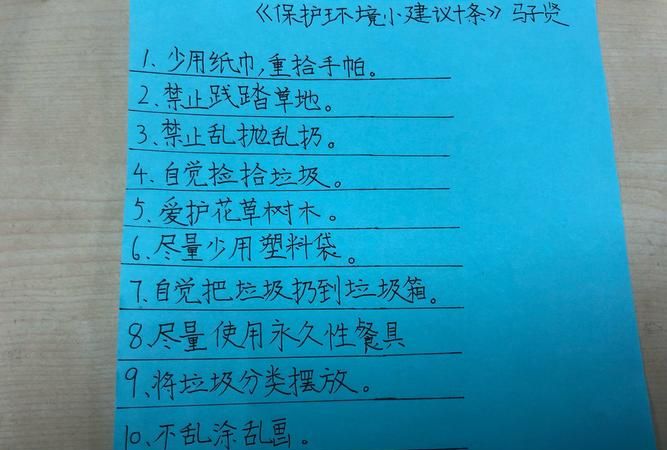 《保护环境小建议十条》 马子贤
1、少用纸巾,重拾手帕。
2、禁止践踏草地。
3、禁止乱抛乱扔。
4、自觉捡拾垃圾。
5、爱护花草树木。
6、尽量少用塑料袋。
7、自觉把垃圾扔到垃圾箱。
8、尽量使用永久性餐具
9、将垃圾分类摆放。
10、不乱涂乱画。